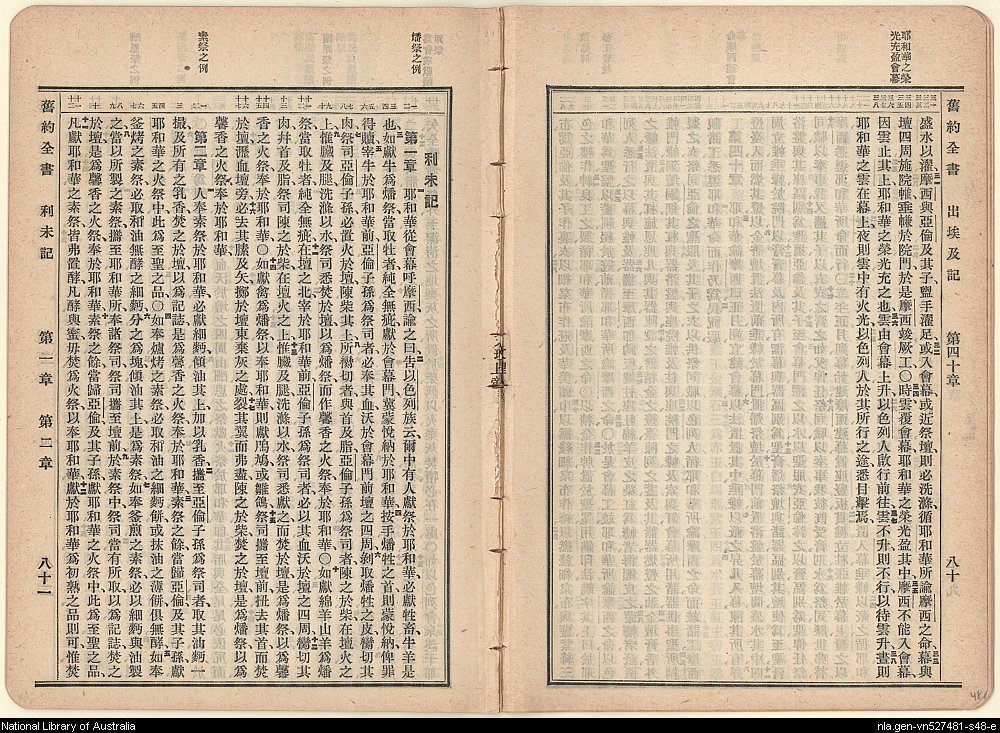 耶和華之榮
光充盈會幕
舊約全書 出埃及記 第四十章 八十
盛水以濯摩西與亞倫及其子盥手濯足或入會幕或近祭壇則必洗滌循耶和華所諭摩西之命幕與
壇四周施院帷垂㡘於院門於是摩西竣厥工〇時雲覆會幕耶和華之榮光盈其中摩西不能入會幕
因雲止其上耶和華之榮光充之也雲由會幕上升以色列人啟行前往雲不升則不行以待雲升晝則
耶和華之雲在幕上夜則雲中有火光以色列人於其所行之途悉目擊焉
燔祭之例
素祭之例
利未記
第一章 耶和華從會幕呼摩西諭之曰告以色列族云爾中有人獻祭於耶和華必獻牲畜牛羊是
也如獻牛爲燔祭當取牡者純全無疵獻於會幕門冀蒙悅納於耶和華按手燔牲之首則蒙悅納俾罪
得贖宰牛於耶和華前亞倫子孫爲祭司者必奉其血沃於會幕門前壇之四周剝取燔牲之皮臠切其
肉祭司亞倫子孫必置火於壇陳柴其上所臠切者與首及脂亞倫子孫爲祭司者陳之於柴在壇火之
上惟臟及腿洗滌以水祭司悉焚於壇以爲燔祭而作馨香之火祭奉於耶和華〇如獻綿羊山羊爲燔
祭當取牡者純全無疵在壇之北宰於耶和華前亞倫子孫爲祭司者必以其血沃於壇之四周臠切其
肉幷首及脂祭司陳之於柴在壇火之上惟臟及腿洗滌以水祭司悉獻之而焚於壇是爲燔祭以爲馨
香之火祭奉於耶和華〇如獻禽爲燔祭以奉耶和華則獻鳲鳩或雛鴿祭司攜至壇前扭去其首而焚
於壇瀝血壇旁必去其膆及矢擲於壇東棄灰之處裂其翼而弗盡陳之於柴焚之於壇是爲燔祭以爲
馨香之火祭奉於耶和華
第二章 人奉素祭於耶和華必獻細麪傾油其上加以乳香攜至亞倫子孫爲祭司者取其油麪一
撮及所有之乳香焚之於壇以爲記誌是爲馨香之火祭奉於耶和華素祭之餘當歸亞倫及其子孫獻
耶和華之火祭中此爲至聖之品〇如奉爐烤之素祭必取和油之細麪餅或抹油之薄餅俱無酵如奉
釜烤之素祭必取和油無酵之細麪分之爲塊傾油其上是爲素祭如奉釜煎之素祭必以細麪與油製
之當以所製之素祭攜至耶和華所奉諸祭司祭司攜至壇前於素祭中祭司當有所取以爲記誌焚之
於壇是爲馨香之火祭奉於耶和華素祭之餘當歸亞倫及其子孫獻耶和華之火祭中此爲至聖之品
凡獻耶和華之素祭皆弗置酵凡酵與蜜毋焚爲火祭以奉耶和華獻於耶和華爲初熟之品則可惟焚
舊約全書 利未記 第一章 第二章 八十一
National Library of Australia
nla.gen-vn527481-s48-e